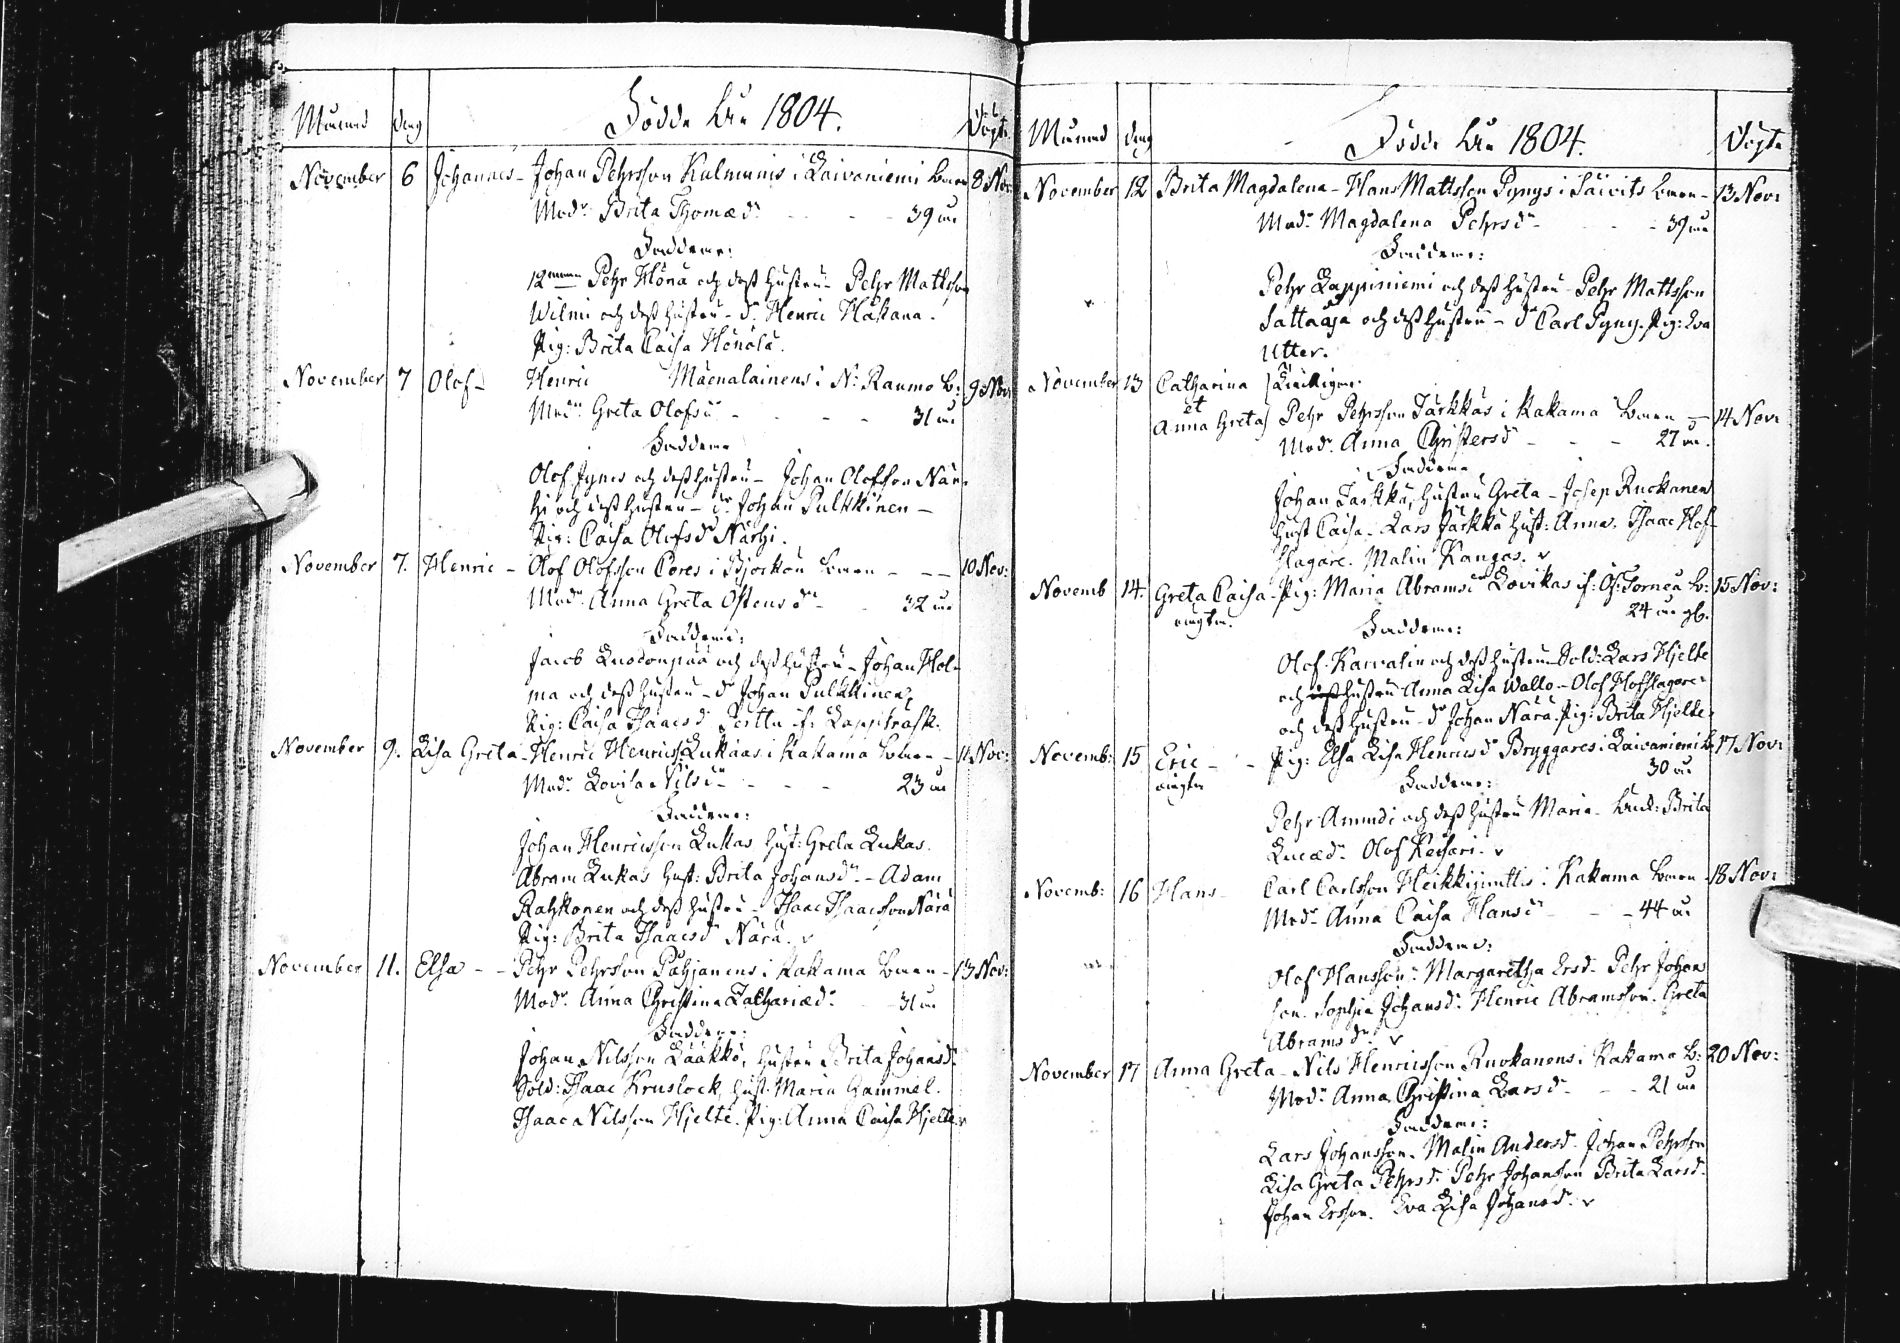 Månad dag Födde År 1804. Döpte
November 6 Johannes - Johan Pehrsson Kulmunis i Laivaniemi barn 8 Nov:
Modr: Brita Thomædr - - - 39 år
Faddrar:
12 man Pehr Höna och dess hustru - Pehr Mattsson
Wilmi och dess hustru - dr Henric Hakana.
Pig: Brita Caisa Hönälä.
November 7 Olof - Henric Maenalainens i N: Raumo b: 9 Nov:
Modr: Greta Olofsdr - - - 31 år
Faddrar
Olof Jynes och dess hustru - Johan Olofsson När-
hi och dess hustru - dr Johan Pulkkinen -
Pig: Caisa Olofsd Närhi.
November 7. Henric - Olof Olofsson Pores i Björkön barn - - - 10 Nov:
Modr: Anna Greta Ostensdr - 32 år
Faddrar:
Jacob Luodonpää och dess hustru - Johan Hol-
ma och dess hustru - dr Johan Pulkkinen
Pig: Caisa Isaacsd f: Lappträsk.
November 9. Lisa Greta - Henric Henricss: Lukkaas i Kakama barn - 11 Nov:
Modr Lovisa Nilsdr - - - 23 år
Faddrar:
Johan Henricsson Lukas hust: Greta Lukas.
Abram Lukas hust: Brita Johansdr - Adam
Rahkonen och dess hustru - Isaac Isaacsson Närä
Pig: Brita Isaacsd Närä.
November 11. Elsa - - Pehr Pehrsson Pahjanens i Kakama barn - 13 Nov:
Modr: Anna Christina Zachariædr - 31 år
Faddrar:
Johan Nilsson Lääkkö, hustru Brita Johansd.
Sold: Isaac Kruslock, hust: Maria Gammel.
Isaac Nilsson Hjelte. Pig: Anna Caisa Hjelte.
Månad dag Födde År 1804. Döpte
November 12 Brita Magdalena - Hans Mattsson Pynys i Säivits barn - 13 Nov:
Modr Magdalena Pehrsdr - - - 39 år
Faddrar:
Pehr Lappiniemi och dess hustru - Pehr Mattsson
Sattaaja och dess hustru - dr Carl Pyny. Pig: Eva
Utter.
November 13 Catharina } Twillingar
et
Anna Greta } Pehr Pehrsson Järkkäs i Kakama barn - 14 Nov:
Modr Anna Christersdr - - - 27 år.
Faddrar
Johan Järkkä, hustru Greta - Josep Ruokanen
hust Caisa - Lars Järkkä hust: Anna. Isaac Hof-
slagare. Malin Kangas.
Novemb 14. Greta Caisa - Pig: Maria Abramsdr Lovikas f: Öf: Torneå b: 15 Nov:
oägta. 24 år gl.
Faddrar:
Olof Karvalin och dess hustru Sold: Lars Hjelte
och dess hustru Anna Lisa Wallo - Olof Hofslagare
och dess hustru - dr Johan Närä. Pig: Brita Hjelte.
Novemb: 15 Eric - - Pig: Elsa Lisa Henricsdr Bryggares i Laivaniemi b: 17 Nov:
oägta 30 år
Faddrar:
Pehr Amundi och dess hustru Maria - Brita
Lucædr. Olof Keisari.
Novemb: 16 Hans - Carl Carlsson Heikkipinttis i Kakama barn - 18 Nov:
Modr Anna Caisa Hansdr - - 44 år
Faddrar:
Olof Hansson. Margaretha Ersd. Pehr Johans
son. Sophia Johansd. Henric Abramsson. Greta
Abramsdr.
November 17 Anna Greta - Nils Henricsson Ruokanens i Kakama b: 20 Nov:
Modr Anna Christina Larsdr - - 21 år
Faddrar:
Lars Johansson. Malin Andersd. Johan Pehrsson
Lisa Greta Pehrsd. Pehr Johansson Brita Larsd.
Johan Ersson. Eva Lisa Johansdr.